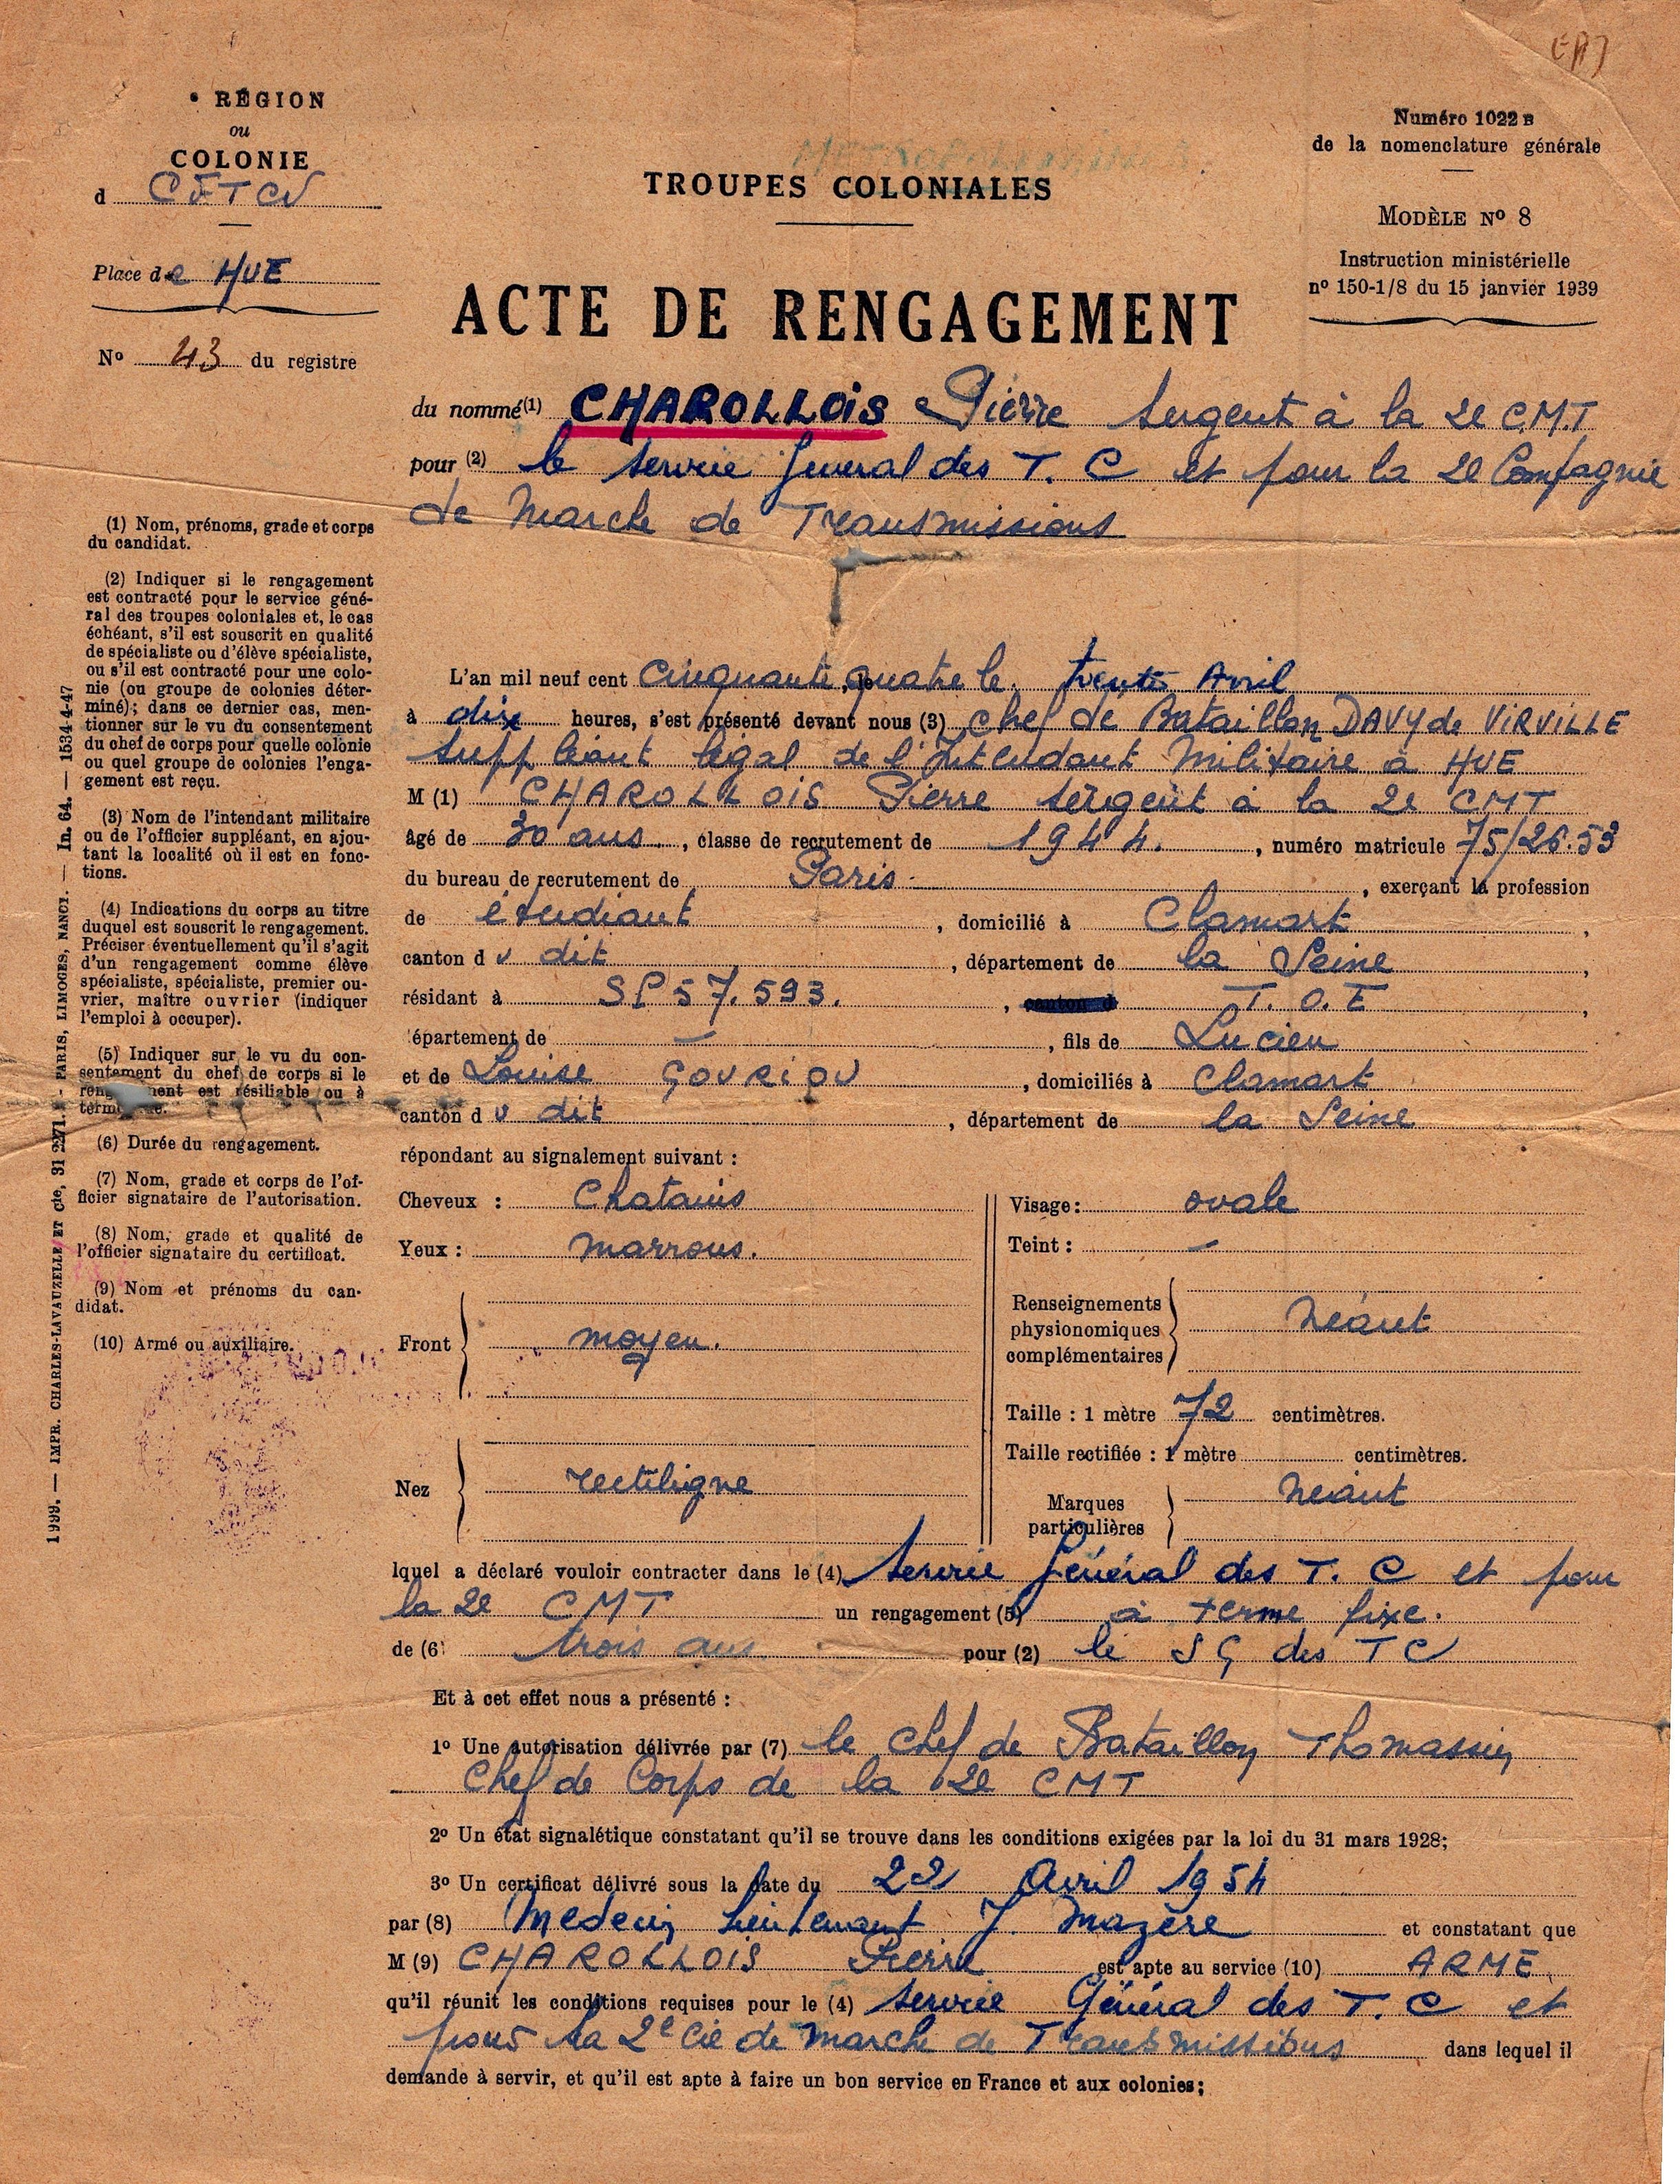 RÉGION
ou
COLONIE
d CFTCV
Place de HUE
No 43 du registre
TROUPES COLONIALES
Numéro 1022 B
de la nomenclature générale
MODÈLE No 8
Instruction ministérielle
no 150-1/8 du 15 janvier 1939
ACTE DE RENGAGEMENT
du nommé(1) CHAROLLOIS Pierre Sergent à la 2e C.M.T
pour (2) le service general des T. C et pour la 2e Compagnie
de Marche de Transmissions
(1) Nom, prénoms, grade et corps
du candidat.
(2) Indiquer si le rengagement
est contracté pour le service géné-
ral des troupes coloniales et, le cas
échéant, s'il est souscrit en qualité
de spécialiste ou d'élève spécialiste,
ou s'il est contracté pour une colo-
nie (ou groupe de colonies déter-
miné); dans ce dernier cas, men-
tionner sur le vu du consentement
du chef de corps pour quelle colonie
ou quel groupe de colonies l'enga-
gement est reçu.
(3) Nom de l'intendant militaire
ou de l'officier suppléant, en ajou-
tant la localité où il est en fonc-
tions.
(4) Indications du corps au titre
duquel est souscrit le rengagement.
Préciser éventuellement qu'il s'agit
d'un rengagement comme élève
spécialiste, spécialiste, premier ou-
vrier, maître ouvrier (indiquer
l'emploi à occuper).
(5) Indiquer sur le vu du con-
sentement du chef de corps si le
est résiliable ou à
(6) Durée du rengagement.
(7) Nom, grade et corps de l'of-
ficier signataire de l'autorisation.
(8) Nom, grade et qualité de
l'officier signataire du certificat.
(9) Nom et prénoms du can-
didat.
(10) Armé ou auxiliaire.
1999. — IMPR. CHARLES-LAVAUZELLE ET Cie, PARIS, LIMOGES, NANCY. — In. 64. — 1534-4-47
L'an mil neuf cent Cinquante quatre le trente Avril
à dix heures, s'est présenté devant nous (3) Chef de Bataillon DAVY de VIRVILLE
suppléant légal de l'Intendant Militaire à HUE
M (1) CHAROLLOIS Pierre sergent à la 2e CMT
âgé de 30 ans, classe de recrutement de 1944, numéro matricule 75/26.53
du bureau de recrutement de Paris, exerçant la profession
de étudiant, domicilié à Clamart,
canton du dit, département de la Seine,
résidant à SP 57.593., T. O. E,
épartement de —, fils de Lucien
et de Louise GOURIOU, domiciliés à Clamart
canton du dit, département de la Seine
répondant au signalement suivant :
Cheveux : Chatains
Yeux : marrons.
Front moyen.
Nez rectiligne
Visage : ovale
Teint : —
Renseignements
physionomiques
complémentaires Néant
Taille : 1 mètre 72 centimètres.
Taille rectifiée : 1 mètre centimètres.
Marques
particulières Néant
lquel a déclaré vouloir contracter dans le (4) Service Général des T. C et pour
la 2e CMT un rengagement (5) à terme fixe.
de (6) trois ans pour (2) le SG des TC
Et à cet effet nous a présenté :
1o Une autorisation délivrée par (7) le Chef de Bataillon Thomassin
Chef de Corps de la 2e CMT
2o Un état signalétique constatant qu'il se trouve dans les conditions exigées par la loi du 31 mars 1928;
3o Un certificat délivré sous la date du 22 Avril 1954
par (8) Medecin Lieutenant J. Mazère et constatant que
M (9) CHAROLLOIS Pierre est apte au service (10) ARME
qu'il réunit les conditions requises pour le (4) Service Général des T. C et
pour la 2e Cie de marche de Transmissions dans lequel il
demande à servir, et qu'il est apte à faire un bon service en France et aux colonies;